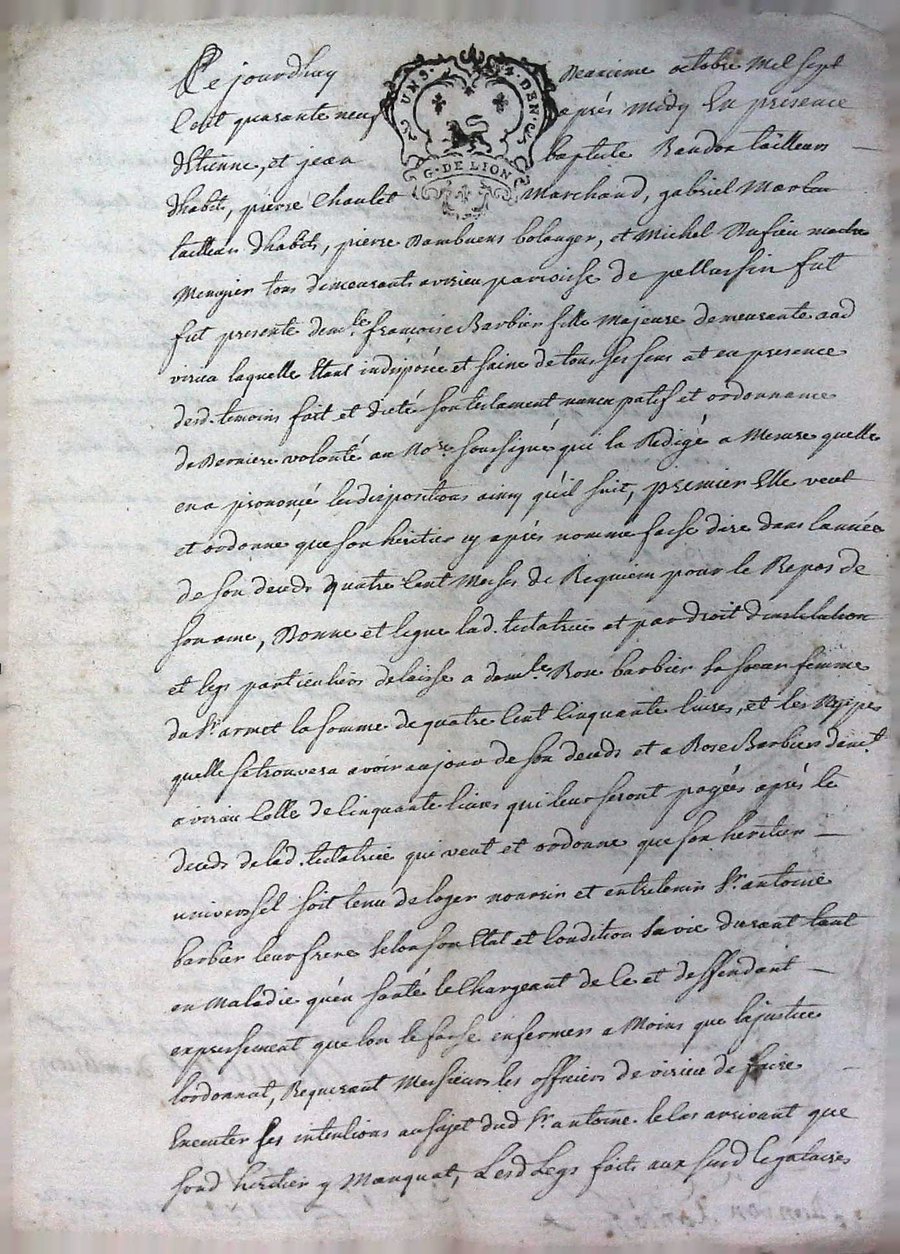 UN S. 4. DEN.
G. DE LION
Ce jourdhuy Deuxieme octobre Mil sept
Cent quarante neuf après Midy En presence
dEtienne, et jean baptiste Baudon tailleurs
dhabits, pierre Chaulet Marchand, gabriel
tailleur dhabits, pierre bolanger, et Michel
Menuzier tous demeurants a virieu paroisse de pellussin fut
fut presente dem.lle françoise Barbier fille Majeure demeurante aud
virieu laquelle Etant indisposée et saine de tous ses sens at en presence
desd. temoins fait et dicté son testament nuncupatif et ordonnance
de derniere volonté au No.re soussigné qui la Redigé a Mesure quelle
en a prononcé les dispositions ainsy qu'il suit, premier Elle veut
et ordonne que son heritier cy après nommé fasse dire dans lannée
de son deceds quatre Cent Messes de Requiem pour le Repos de
son ame, Donne et legue lad. testatrice et par droit dinstitution
et legs particuliers delaisse a dem.lle barbier sa sœur femme
du S.r armet la somme de quatre Cent Cinquante livres, et les Nippes
quelle se trouvera avoir au jour de son deceds et a Rose Barbier dem.t
a virieu Celle de Cinquante livres qui leur seront payées après le
deceds de lad. testatrice qui veut et ordonne que son heritier
universsel soit tenu de loger nourrir et entretenir S.r antoine
barbier leur frere selon son Etat et Condition sa vie durant tant
en Maladie qu'en santé le Chargeant de Ce et deffendant
expressement que lon le fasse enfermer a Moins que la justice
lordonnat, Requerant Messieurs les officiers de virieu de faire
Executer ses intentions au sujet dud S.r antoine. le Cas arrivant que
sond heritier y Manquat, Lesd Legs faits aux susd legataires